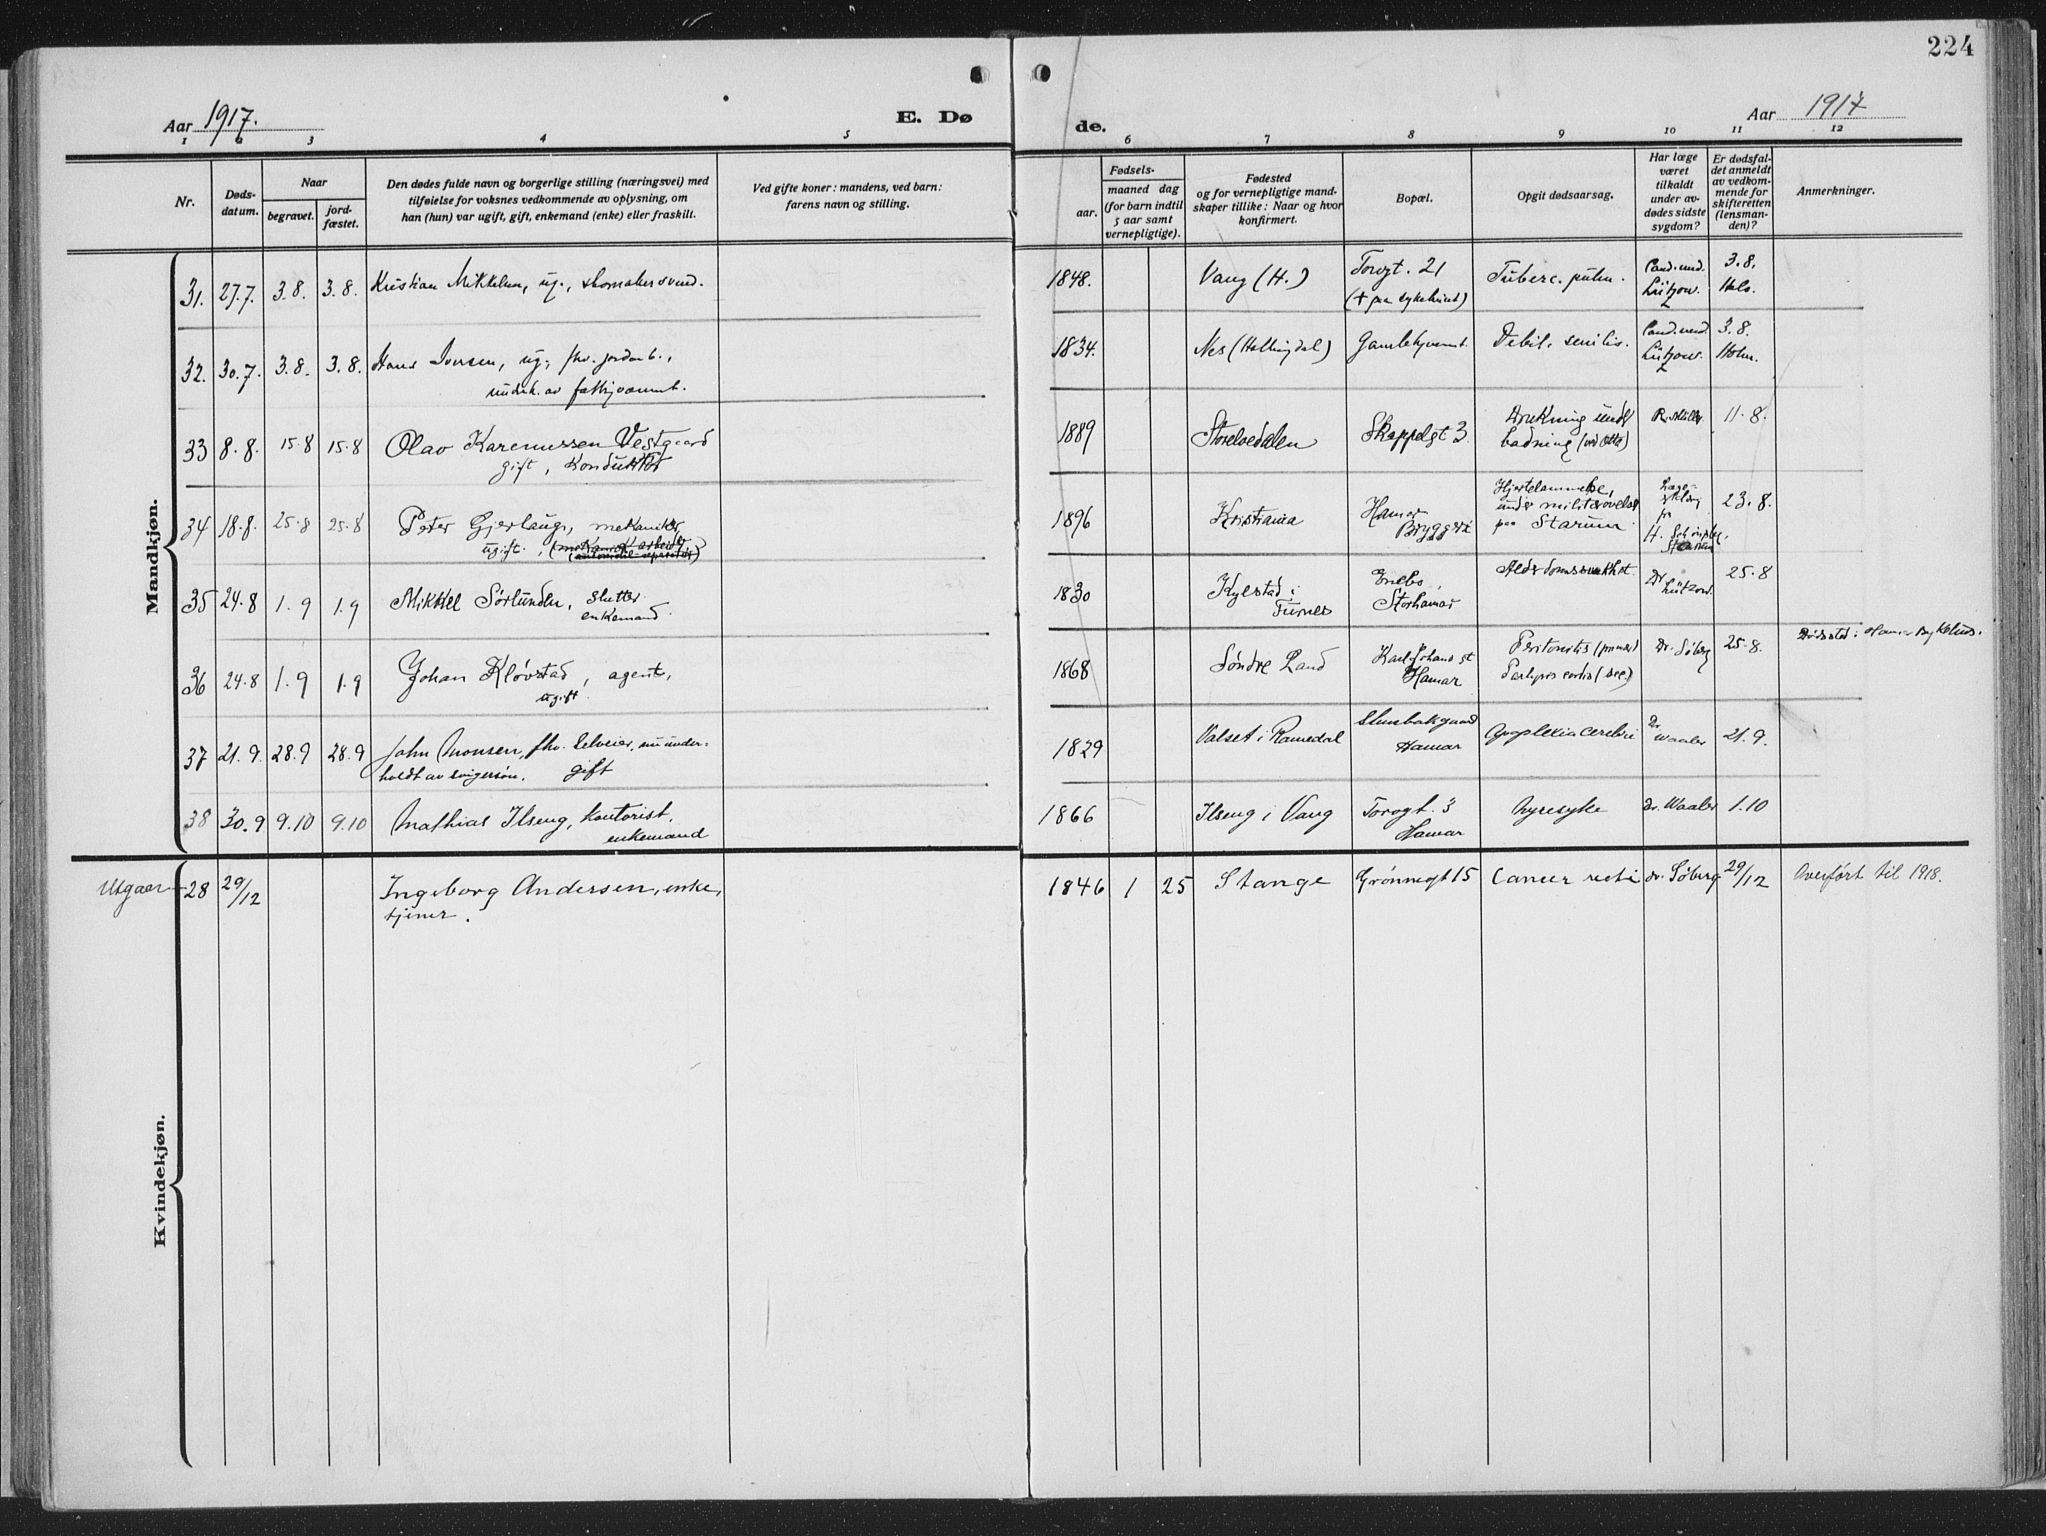 224
Aar 1917.
E. Dø
de.
Aar 1917
1 2 3 4 5 6 7 8 9 10 11 12
Nr.
Døds-
datum.
Naar
begravet.
jord-
fæstet.
Den dødes fulde navn og borgerlige stilling (næringsvei) med
tilføielse for voksnes vedkommende av oplysning, om
han (hun) var ugift, gift, enkemand (enke) eller fraskilt.
Ved gifte koner: mandens, ved barn:
farens navn og stilling.
Fødsels-
aar.
maaned dag
(for barn indtil
5 aar samt
vernepligtige).
Fødested
og for vernepligtige mand-
skaper tillike: Naar og hvor
konfirmert.
Bopæl.
Opgit dødsaarsag.
Har læge
været
tilkaldt
under av-
dødes sidste
sygdom?
Er dødsfal-
det anmeldt
av vedkom-
mende for
skifteretten
(lensman-
den)?
Anmerkninger.
Mandkjøn.
31. 27.7. 3.8. 3.8. Kristian Mikkelsen, ug., skomakersvend.
1848. Vang (H.) Torvgt. 21 Tuberc. pulm. Cand. med. 3.8.
(+ paa sykehuset) Lützow.
32. 30.7. 3.8. 3.8. Hans Iversen, ug., fhv. jordarb.,
underh. av fattigvæsenet.
1834. Nes (Hallingdal) Gamlehjemmet. Debil. senilis. Cand. med. 3.8.
Lützow. Holm.
33 8.8. 15.8 15.8 Olav Karenussen Vestgaard
gift, Konduktør
1889 Storelvedalen Skappelsgt 3. Drukning under 11.8.
badning (ved Otta)
34 18.8. 25.8 25.8 Peter Gjerlaugs, mekaniker,
ugift.
1896 Kristiania Hamar Hjertelammelse, 23.8.
Bryggeri under militærøvelser
paa Starum
35 24.8 1.9 1.9 Mikkel Sørlunden, slutter
enkemand.
1830 Kylstad i Enebo, Alderdomssvakhet Dr. 25.8
Furnes Storhamar Lützow.
36 24.8 1.9 1.9 Johan Kløvstad, agent,
ugift.
1868 Søndre Land Karl Johans gt Peritonitis (primær) Dr. Søberg 25.8. Dødssted: Hamar Sykehus.
Hamar Paralysis cordis (sec.)
37 21.9. 28.9 28.9 John Monsen, fhv. selveier, nu under-
holdt av svigersøn. gift
1829 Valset i Romedal Hamar Apoplexia cerebri Dr. Waaler 21.9.
38 30.9 9.10 9.10 Mathias Ilseng, kontorist,
enkemand
1866 Ilseng i Vang Torvgt. 3 Nyresyke Dr. Waaler 1.10
Hamar
Kvindekjøn.
Utgaar 28 29/12 Ingeborg Andersen, enke,
tjener.
1846 1 25 Stange Grønnegt 15 Cancer recti dr. Søberg 29/12 Overført til 1918.